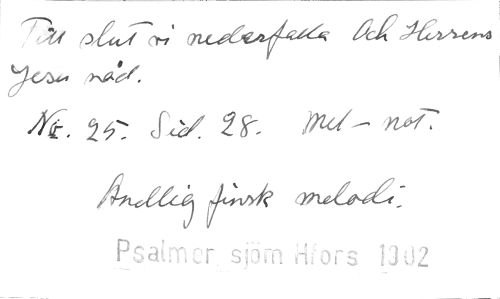 Till slut vi nederfalla Och Herrens
Jesu nåd.
Nr. 25. Sid. 28. Mel-not.
Andlig finsk melodi.
Psalmer sjöm Hfors 1902